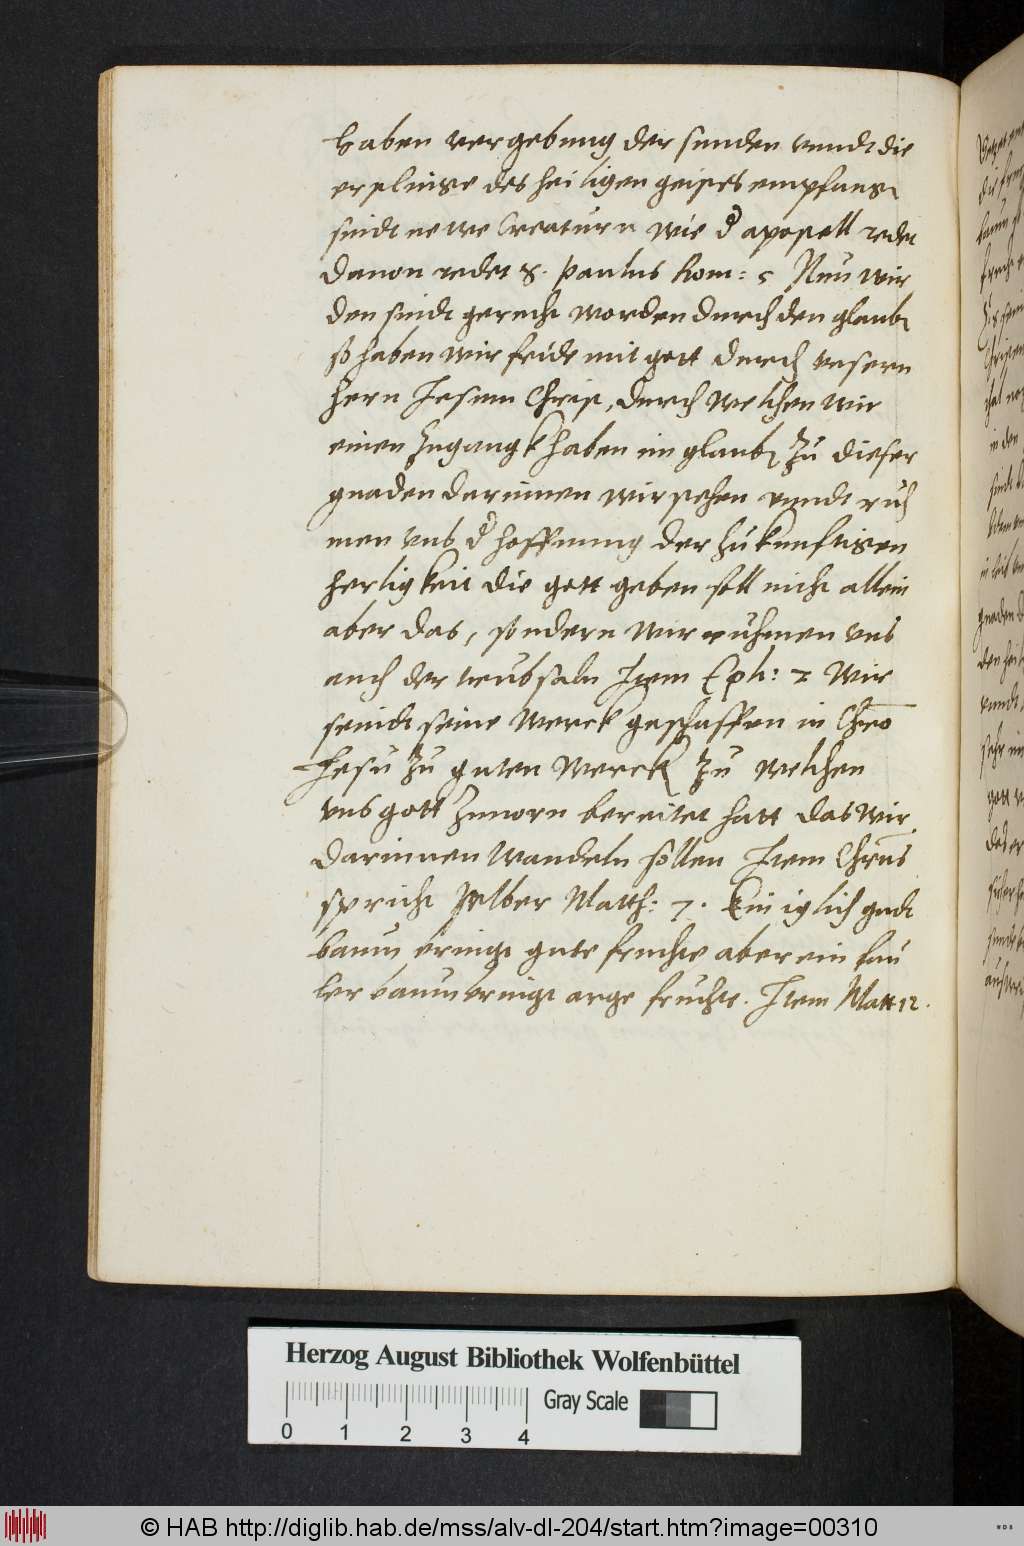 haben vergebung der sunden vnndt die
erstlinge des heiligen geistes empfang
sindt newe Creaturn wie d apostell redet
Dauon redet S. Paulus Rom: 5 Nun wir
den sindt gerecht worden durch den glaub
so haben wir fridt mit gott durch vnsern
hern Jesum Christ, durch welchen wir
einen zugangk haben im glaub zu dieser
gnaden darinnen wir stehen vnndt ruh
men vns d hoffnung der zukunfftigen
herligkeit die gott geben soll nicht allein
aber das, sondern wir ruhmen vns
auch der trubsaln Item Eph: 2 Wir
seindt seine werck geschaffen in Chro
Jesu zu guten werck zu welchen
vns gott zuuorn bereitet hatt das wir
darinnen wandeln sollen Item Chrus
spricht selber Matth: 7. Ein iglich gudt
baum bringt gute fruchte aber ein fau
ler baum bringt arge fruchte. Item Matt 12.
Herzog August Bibliothek Wolfenbüttel
0 1 2 3 4
Gray Scale
© HAB http://diglib.hab.de/mss/alv-dl-204/start.htm?image=00310